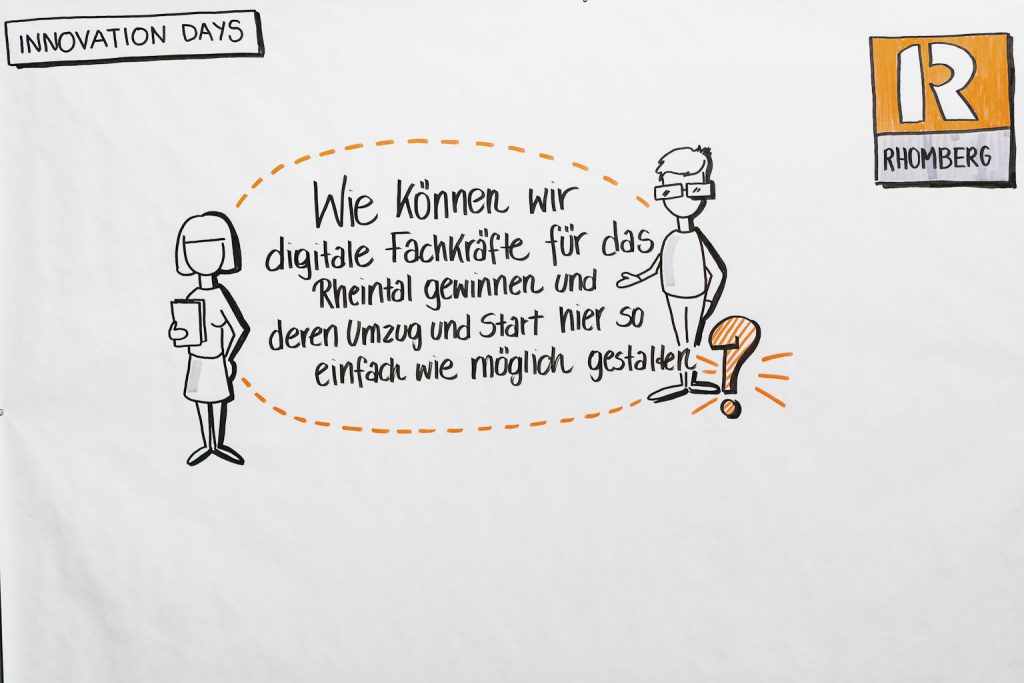 INNOVATION DAYS
R
RHOMBERG
Wie können wir
digitale Fachkräfte für das
Rheintal gewinnen und
deren Umzug und Start hier so
einfach wie möglich gestalten
?